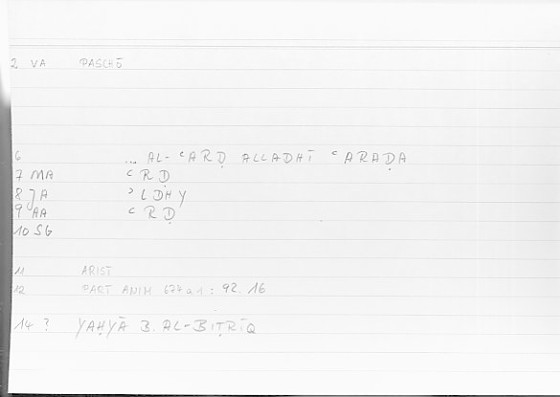 2 VA PASCHŌ
6 ... AL-ʿARḌ ALLADHĪ ʿARAḌA
7 MA ʿRḌ
8 JA ʾLDHY
9 AA ʿRḌ
10 SG
11 ARIST
12 PART ANIM : 92.16
14 ? YAḤYĀ B. AL-BIṬRĪQ